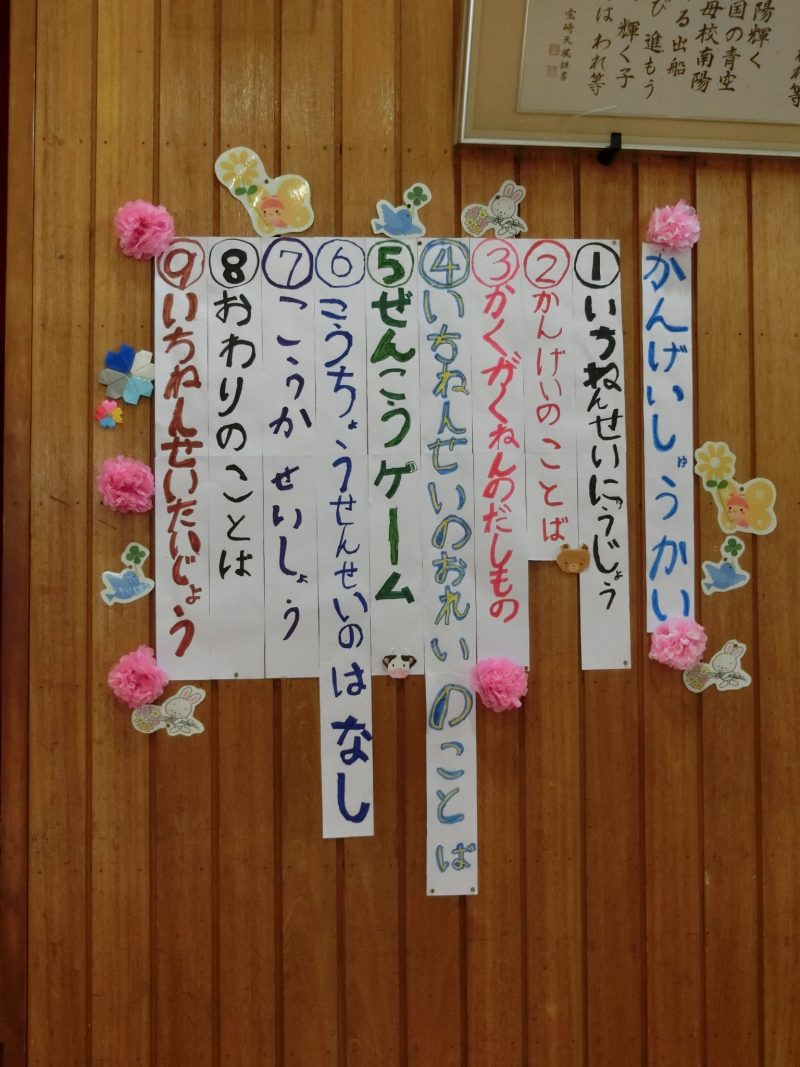 れ等
陽輝く
国の青空
母校南陽
る出船
び 進もう
輝く子
はわれ等
かんげいしゅうかい
①いちねんせいにゅうじょう
②かんげいのことば
③かくがくねんのだしもの
④いちねんせいのおれいのことば
⑤ぜんこうゲーム
⑥こうちょうせんせいのはなし
⑦こうかせいしょう
⑧おわりのことは
⑨いちねんせいたいじょう